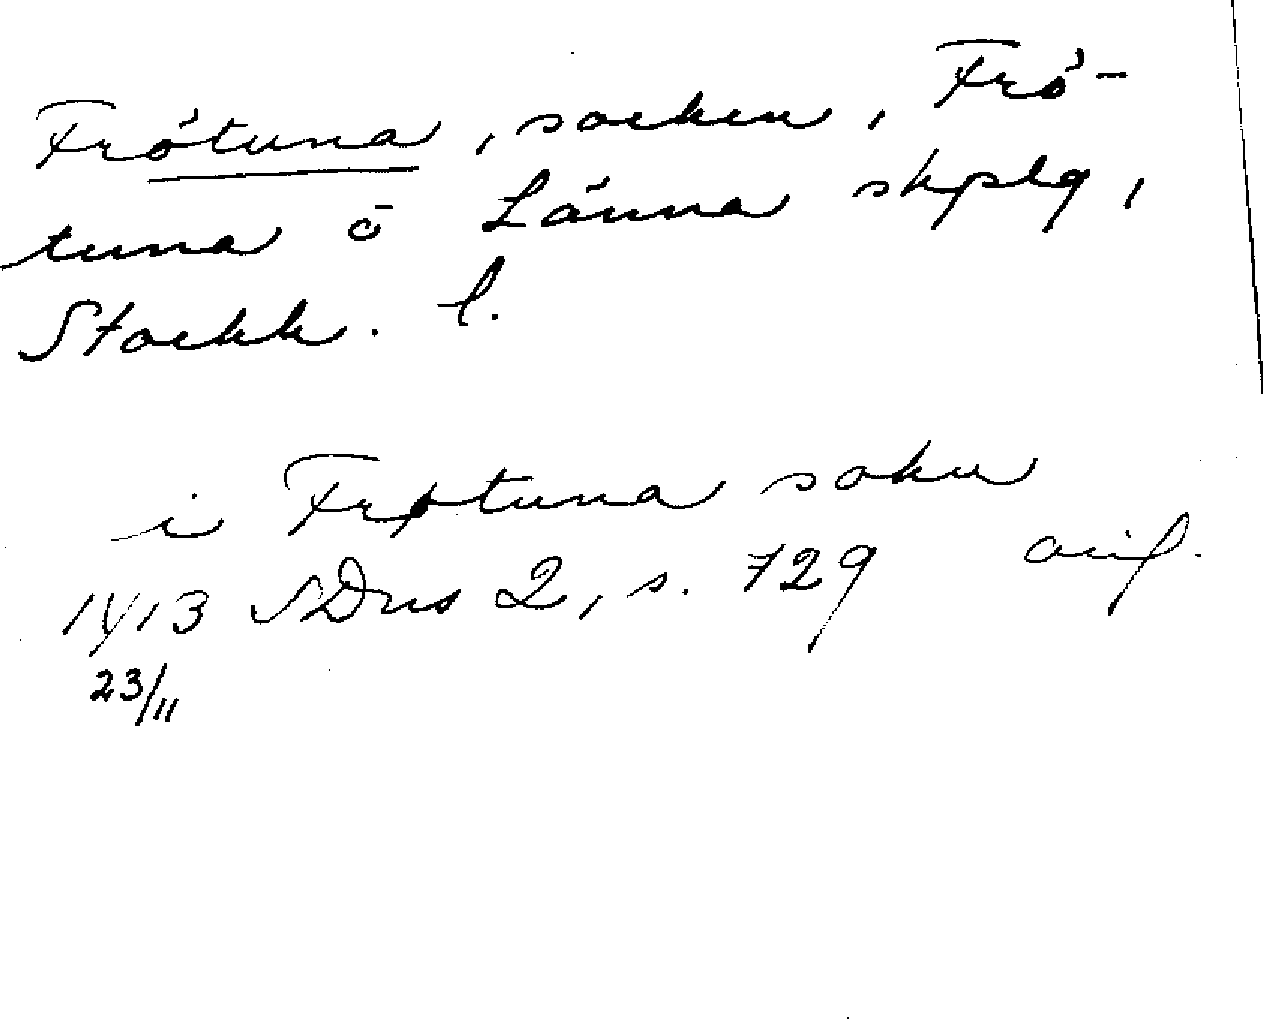 Frötuna, socken, Frö-
tuna o Länna skplg,
Stockh. l.
i Frøtuna sokn
1413 SDns 2, s. 729 avif.
23/11